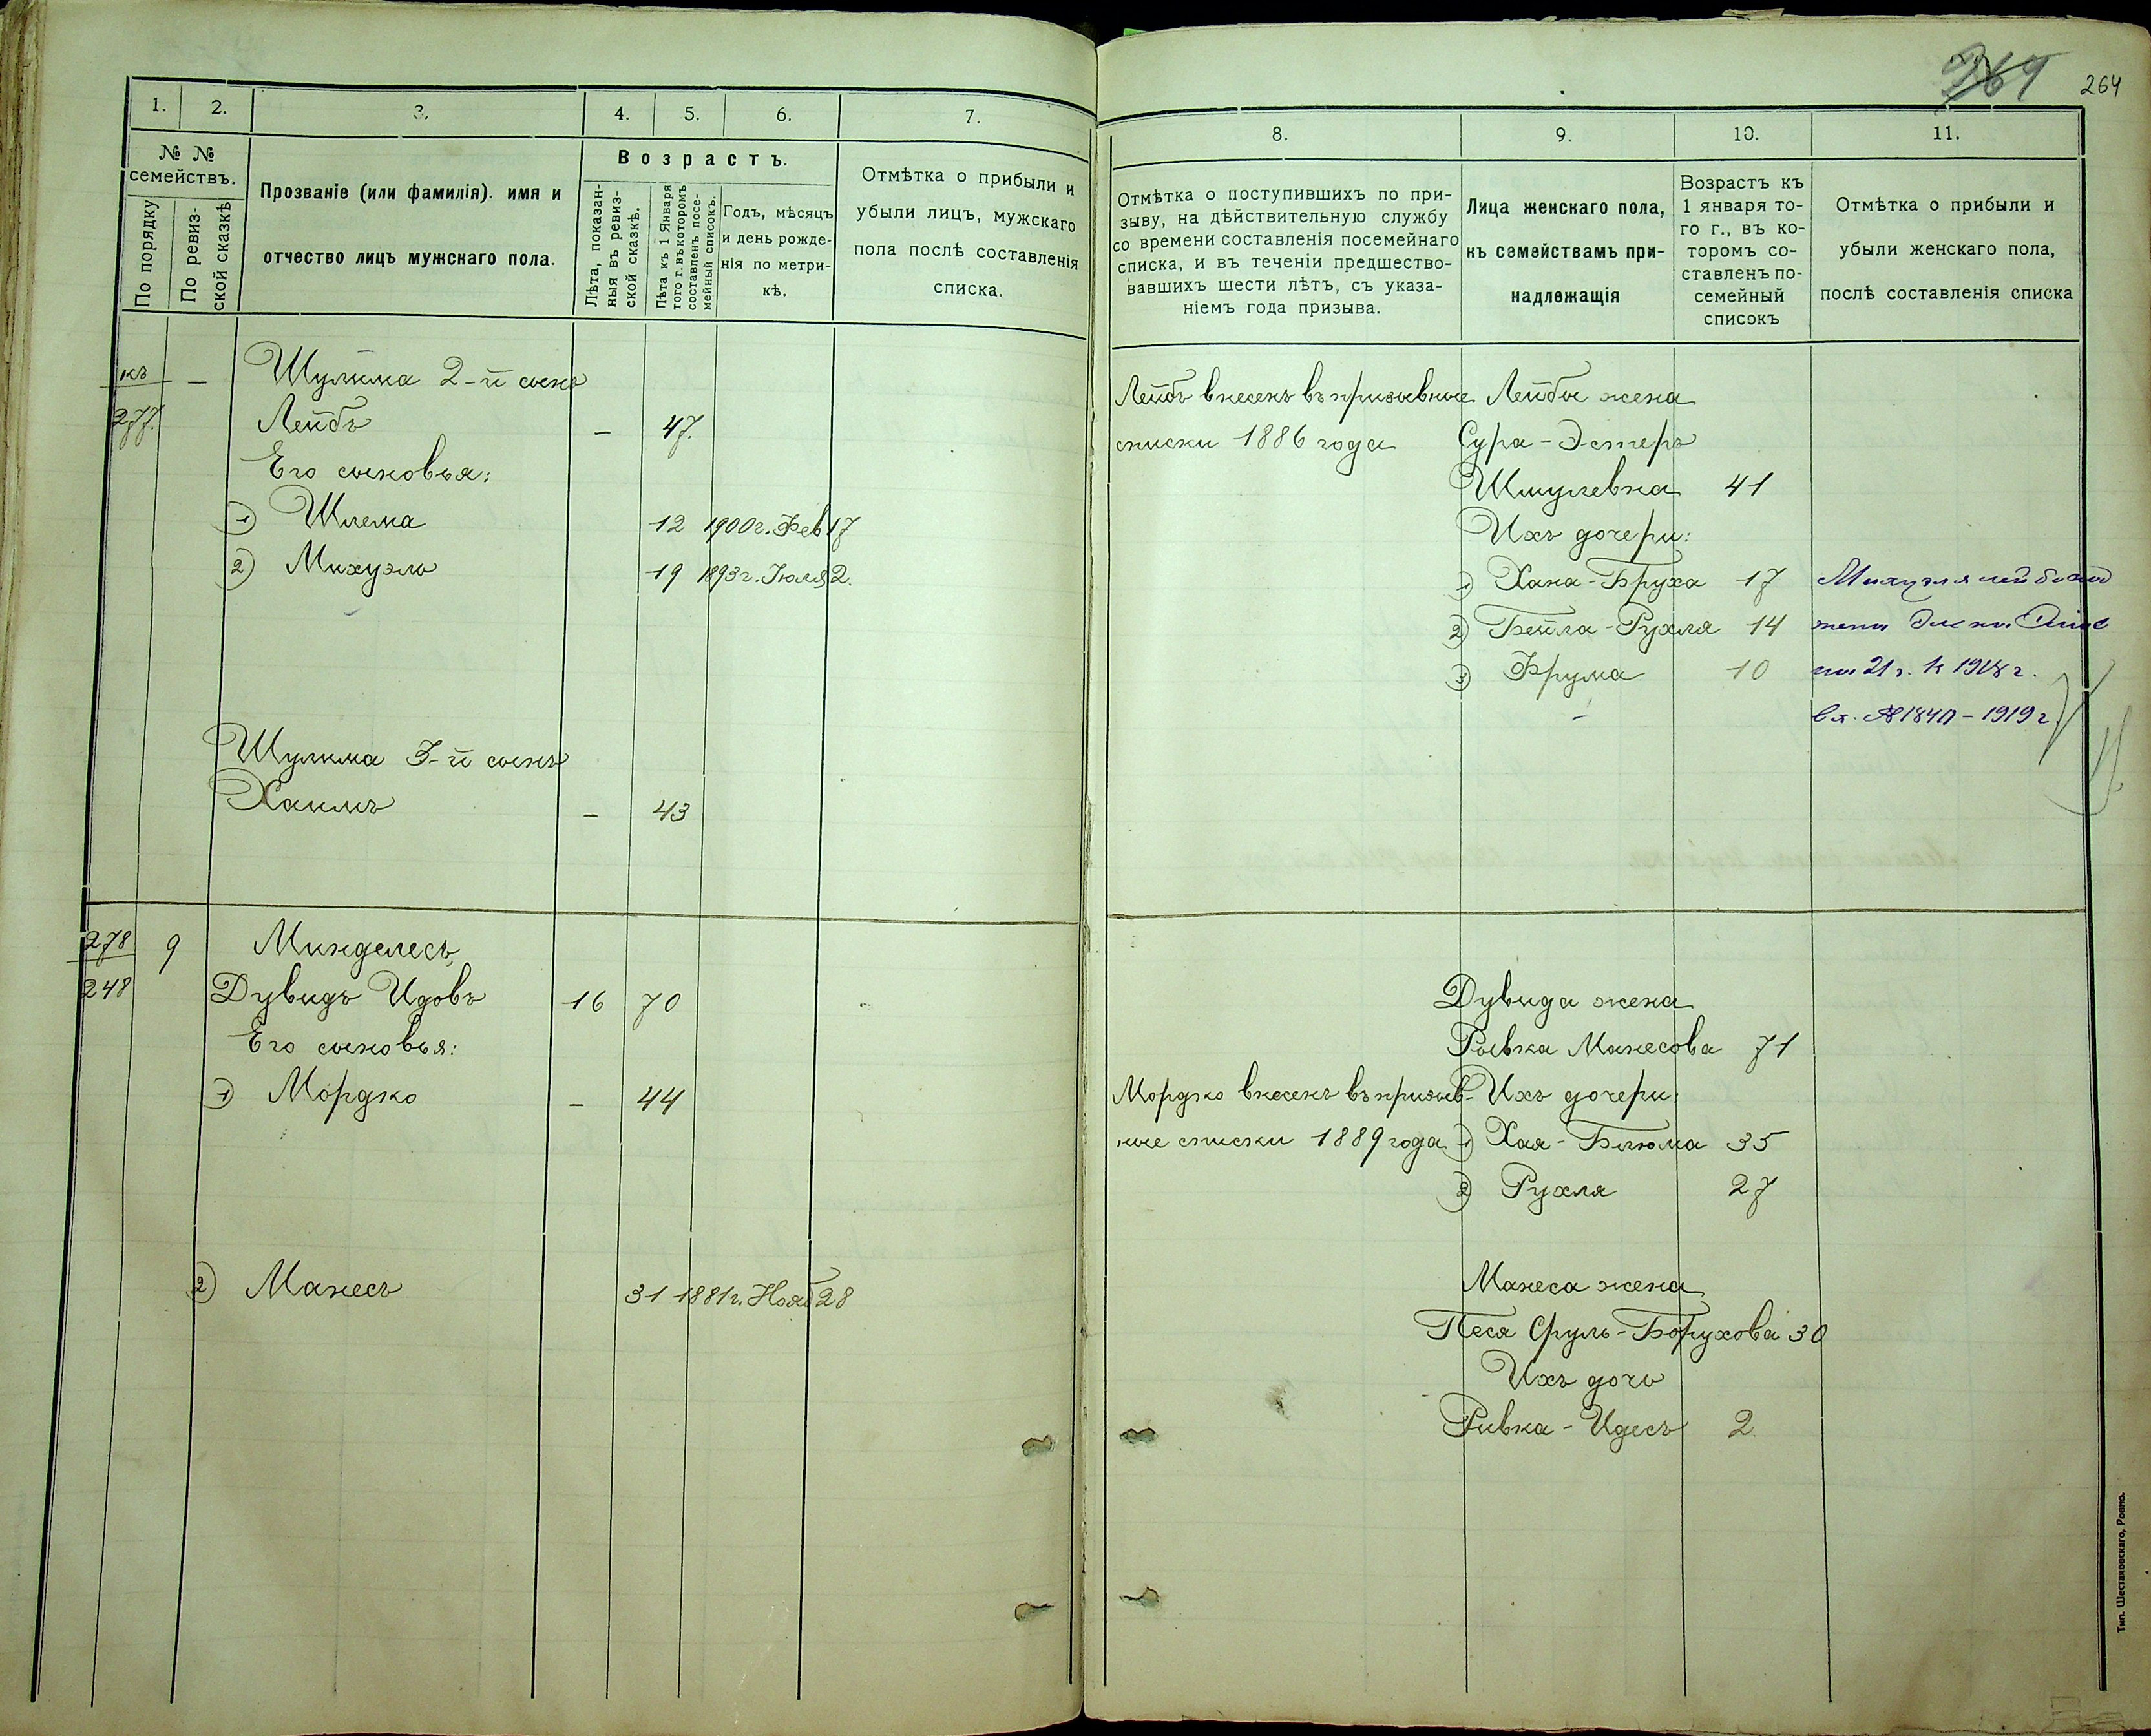 269 264
1. 2. 3. 4. 5. 6. 7.
№ № семействъ.
По порядку
По ревизской сказкѣ
Прозваніе (или фамилія). имя и
отчество лицъ мужскаго пола.
Возрастъ.
Лѣта, показанныя въ ревизской сказкѣ.
Лѣта къ 1 Января того г. въ которомъ составленъ посемейный списокъ.
Годъ, мѣсяцъ
и день рожде-
нія по метри-
кѣ.
Отмѣтка о прибыли и
убыли лицъ, мужскаго
пола послѣ составленія
списка.
къ — Шулима 2-й сынъ
277. Лейбъ — 47.
Его сыновья:
1) Шлема 12 1900 г. Фев 17
2) Михуэль 19 1893 г. Іюля 2.
Шулима 3-й сынъ
Хаимъ — 43
278 9 Минделесъ,
248 Дувидъ Идовъ 16 70
Его сыновья:
1) Мордко — 44
2) Манесъ 31 1881 г. Нояб 28
8. 9. 10. 11.
Отмѣтка о поступившихъ по при-
зыву, на дѣйствительную службу
со времени составленія посемейнаго
списка, и въ теченіи предшество-
вавшихъ шести лѣтъ, съ указа-
ніемъ года призыва.
Лица женскаго пола,
къ семействамъ при-
надлежащія
Возрастъ къ
1 января то-
го г., въ ко-
торомъ со-
ставленъ по-
семейный
списокъ
Отмѣтка о прибыли и
убыли женскаго пола,
послѣ составленія списка
Лейбъ внесенъ въ призывные Лейбы жена
списки 1886 года Сура-Эстеръ
Шмулевна 41
Ихъ дочери:
1) Хана-Бруха 17 Михуэля
2) Бейла-Рухля 14 жена
3) Фрума 10 21 г. к 1918 г.
вх. № 1840 - 1919 г.
Дувида жена
Рывка Манесова 71
Мордко внесенъ въ призыв- Ихъ дочери:
ные списки 1889 года 1) Хая-Блюма 35
2) Рухля 27
Манеса жена
Песя Сруль-Борухова 30
Ихъ дочь
Ривка-Идесъ 2
Тип. Шестаковскаго, Ровно.